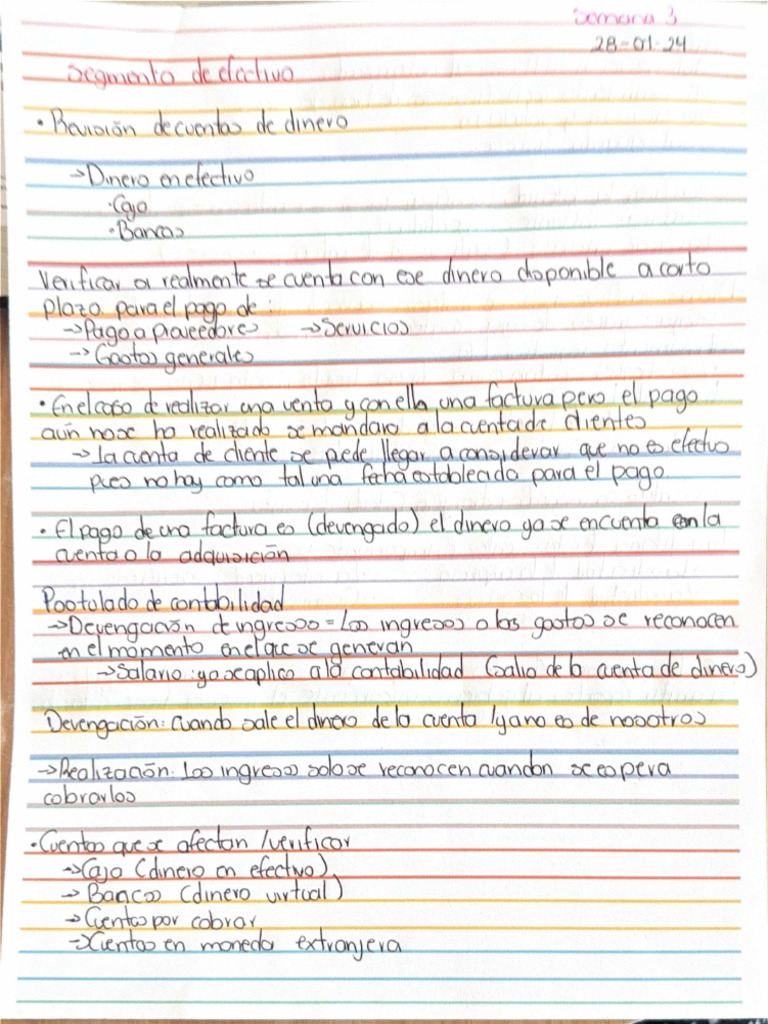 Semana 3
28-01-24
Segmento de efectivo
• Revisión de cuentas de dinero
→ Dinero en efectivo
• Caja
• Bancos
Verificar si realmente se cuenta con ese dinero disponible a corto
plazo para el pago de :
→ Pago a proveedores → Servicios
→ Gastos generales
• En el caso de realizar una venta y con ella una factura pero el pago
aún no se ha realizado se mandara a la cuenta de clientes
→ La cuenta de cliente se puede llegar a considerar que no es efectivo
pues no hay como tal una fecha establecida para el pago
• El pago de una factura es (devengado) el dinero ya se encuenta en la
cuenta o la adquisición
Postulado de contabilidad
→ Devengación de ingresos = Los ingresos o los gastos se reconocen
en el momento en el que se generan
→ Salario : ya se aplico a la contabilidad (salio de la cuenta de dinero)
Devengación: cuando sale el dinero de la cuenta / ya no es de nosotros
→ Realización: Los ingresos solo se reconocen cuandon se espera
cobrarlos
• Cuentas que se afectan / verificar
→ Caja (dinero en efectivo)
→ Bancos (dinero virtual)
→ Cuentas por cobrar
→ Cuentas en moneda extranjera